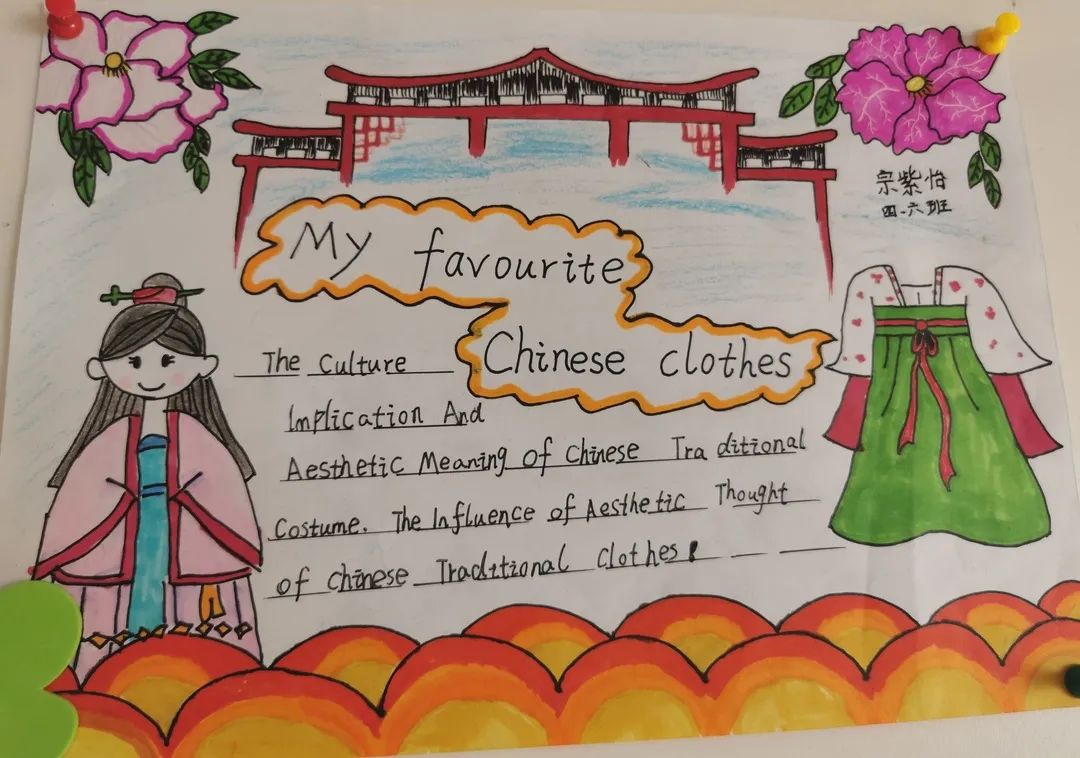 宗紫怡
四.六班
My favourite
Chinese clothes
The Culture
Implication And
Aesthetic Meaning Of Chinese Traditional
Costume. The Influence of Aesthetic Thought
of Chinese Traditional Clothes!